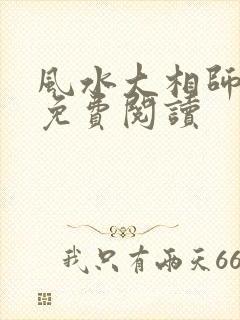 風水大相師
免費閱讀
我只有兩天66